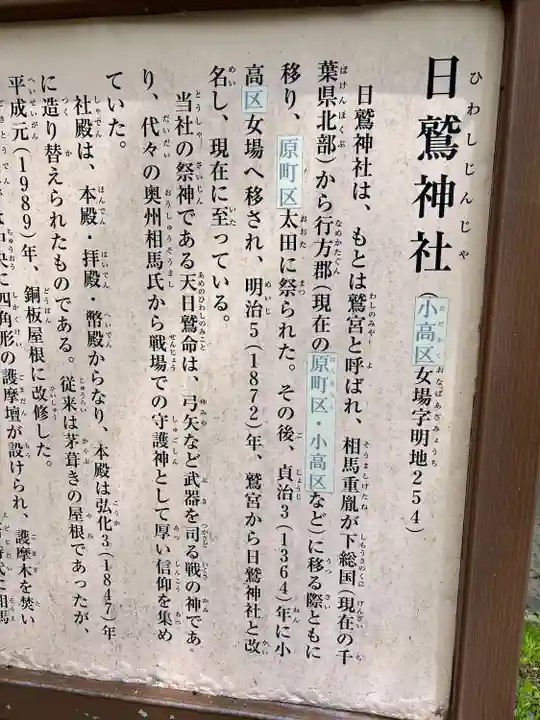 日鷲神社(小高区女場字明地254)
日鷲神社は、もとは鷲宮と呼ばれ、相馬重胤が下総国(現在の千
葉県北部)から行方郡(現在の原町区・小高区など)に移る際ともに
移り、原町区太田に祭られた。その後、貞治3(1364)年に小
高区女場へ移され、明治5(1872)年、鷲宮から日鷲神社と改
名し、現在に至っている。
当社の祭神である天日鷲命は、弓矢など武器を司る戦の神であ
り、代々の奥州相馬氏から戦場での守護神として厚い信仰を集め
ていた。
社殿は、本殿・拝殿・幣殿からなり、本殿は弘化3(1847)年
に造り替えられたものである。従来は茅葺きの屋根であったが、
平成元(1989)年、銅板屋根に改修した。
四角形の護摩壇が設けられ、護摩木を焚い
相馬